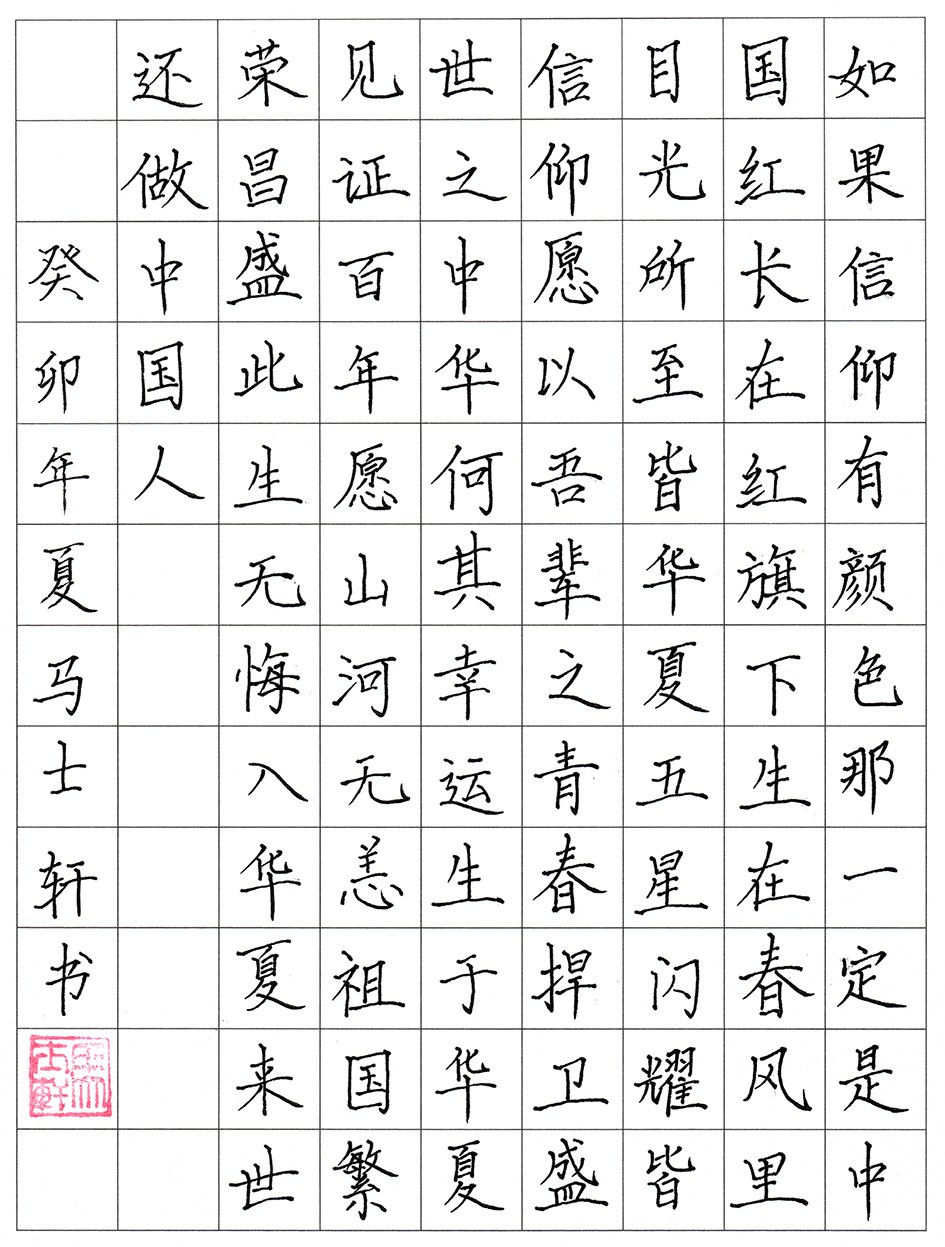 如果信仰有颜色那一定是中
国红长在红旗下生在春风里
目光所至皆华夏五星闪耀皆
信仰愿以吾辈之青春捍卫盛
世之中华何其幸运生于华夏
见证百年愿山河无恙祖国繁
荣昌盛此生无悔入华夏来世
还做中国人
癸卯年夏马士轩书